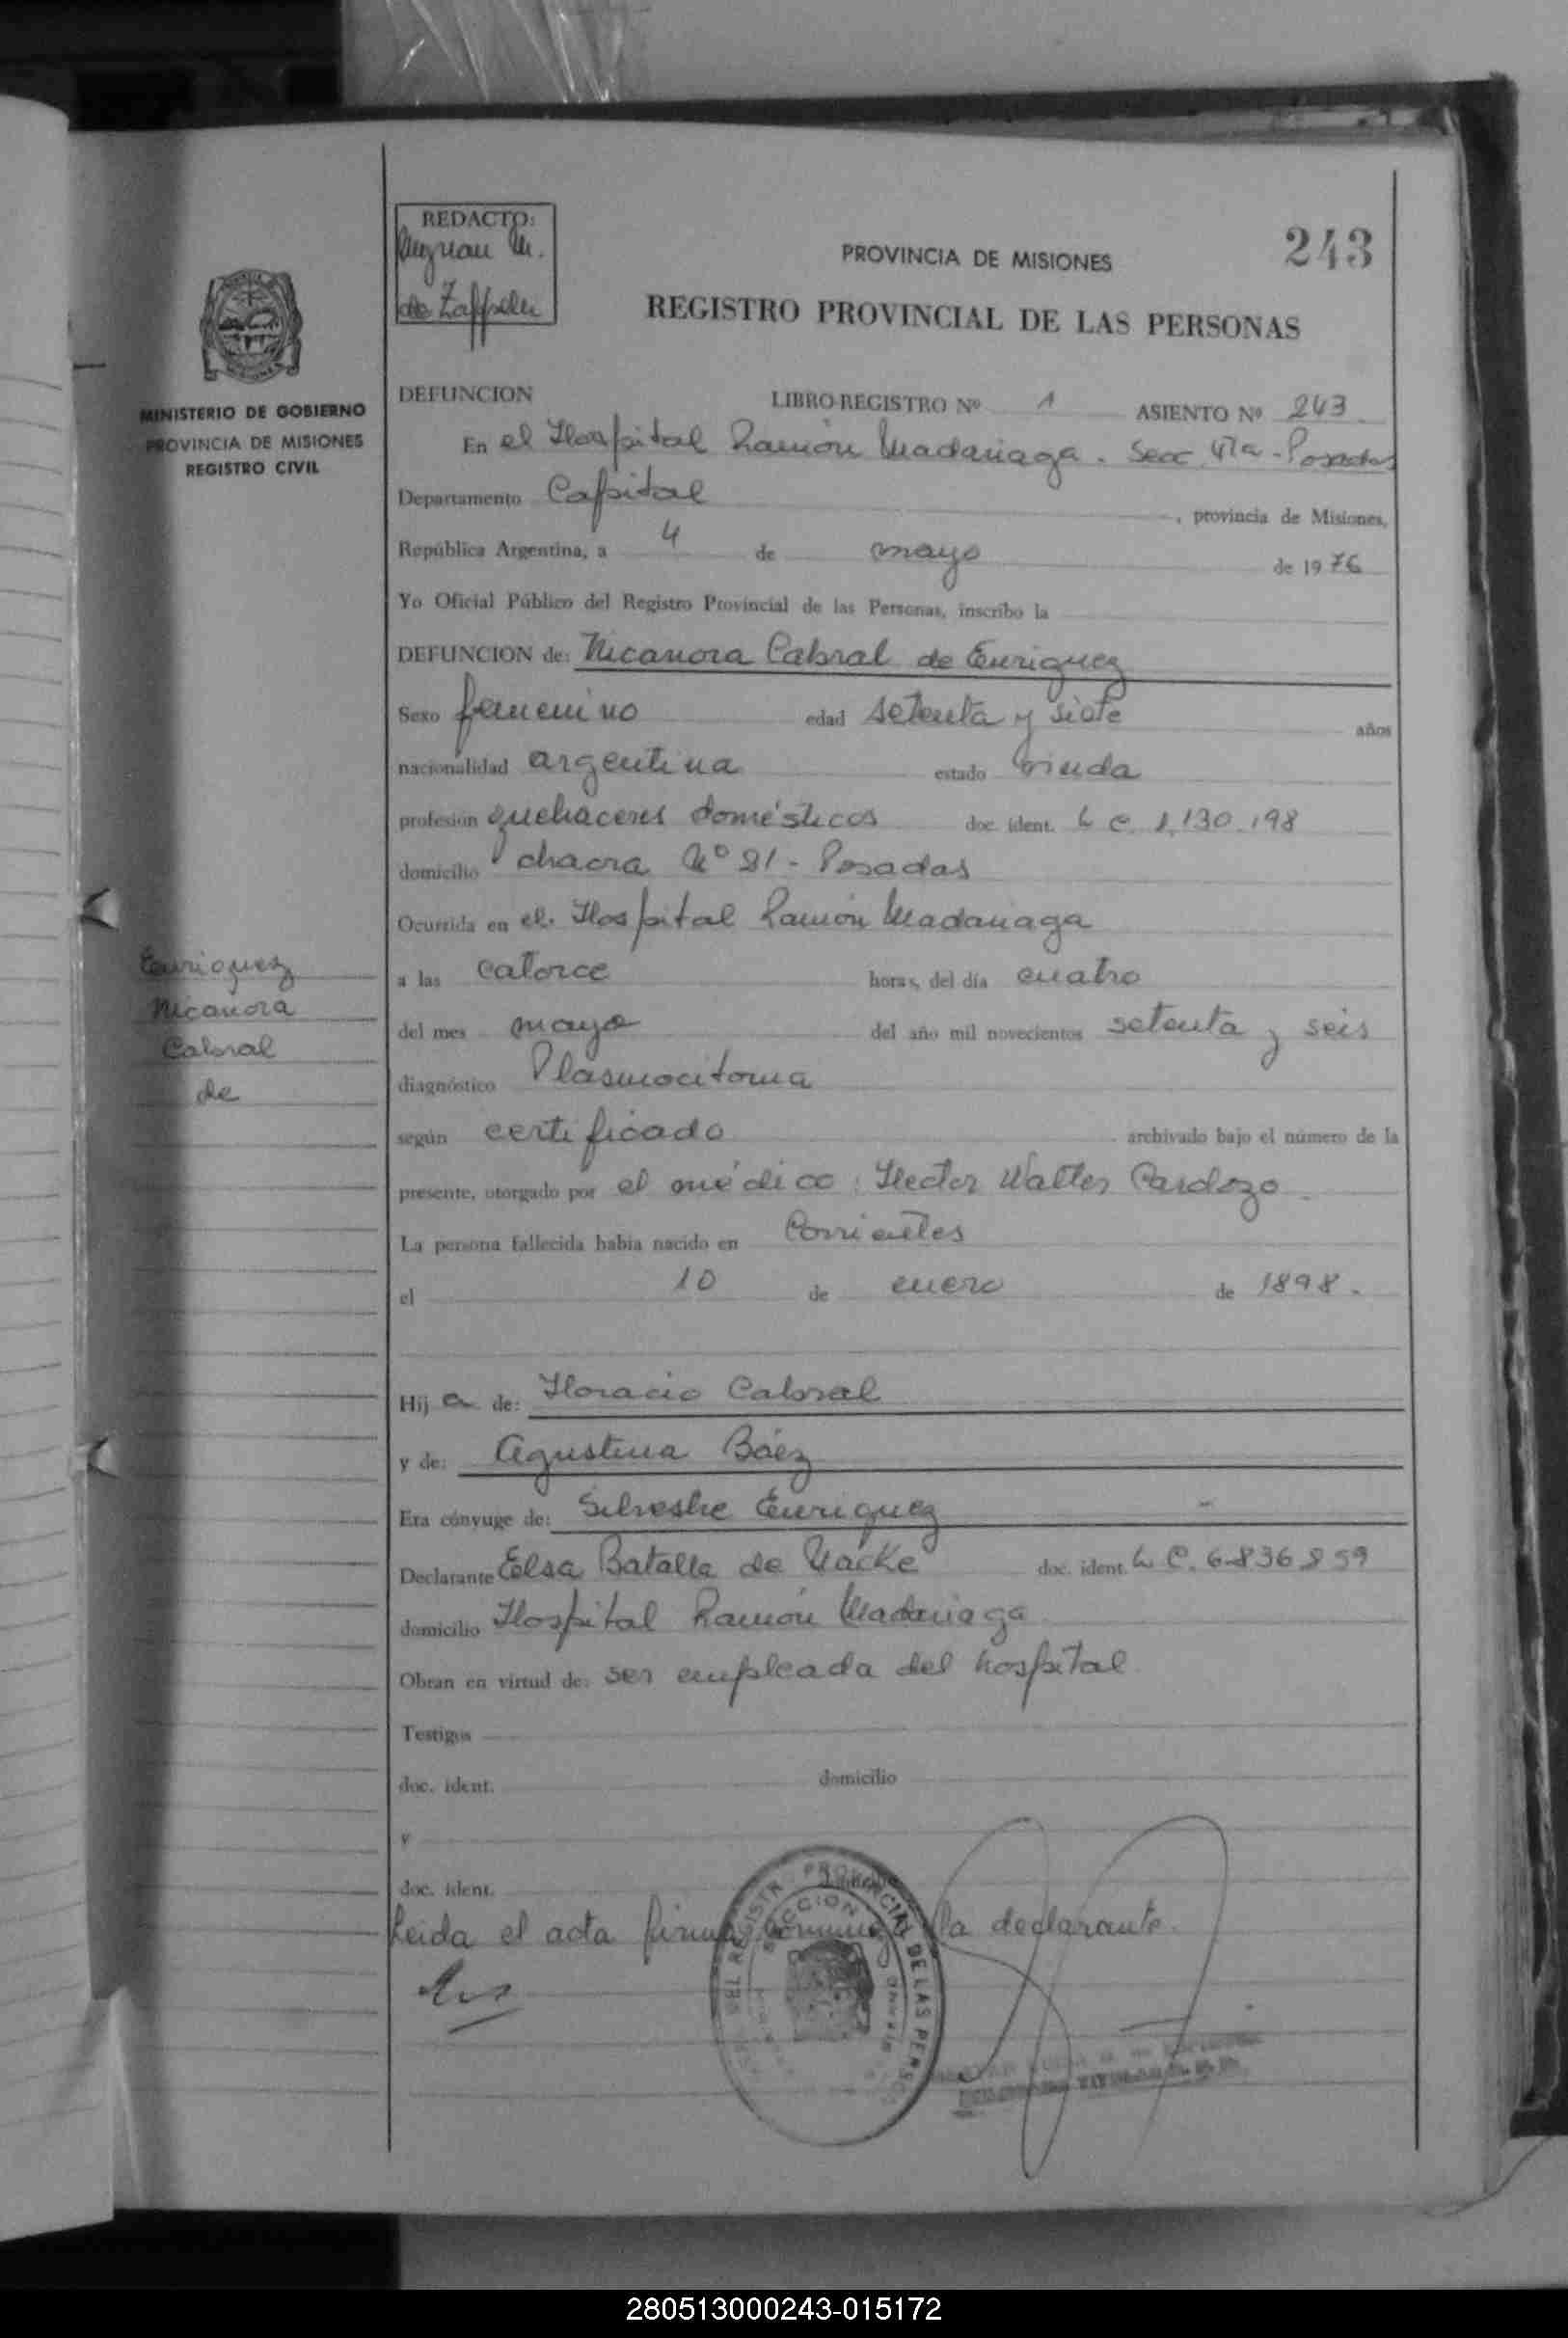 REDACTO:
de Zappelli
243
PROVINCIA DE MISIONES
REGISTRO PROVINCIAL DE LAS PERSONAS
MINISTERIO DE GOBIERNO
PROVINCIA DE MISIONES
REGISTRO CIVIL
DEFUNCION LIBRO-REGISTRO Nº 1 ASIENTO Nº 243
En el Hospital Ramón Madariaga. Secc. 4ta - Posadas
Departamento Capital, provincia de Misiones,
República Argentina, a 4 de mayo de 1976
Yo Oficial Público del Registro Provincial de las Personas, inscribo la
DEFUNCION de: Nicanora Cabral de Enriquez
Sexo femenino edad setenta y siete años
nacionalidad argentina estado viuda
profesión quehaceres domésticos doc. ident. L C. 1,130.198
domicilio chacra Nº 81 - Posadas
Ocurrida en el. Hospital Ramón Madariaga
a las catorce horas, del día cuatro
del mes mayo del año mil novecientos setenta y seis
diagnóstico Plasmocitoma
según certificado archivado bajo el número de la
presente, otorgado por el médico: Hector Walter Cardozo.
La persona fallecida había nacido en Corrientes
el 10 de enero de 1898.
Enriquez
Nicanora
Cabral
de
Hij a de: Horacio Cabral
y de: Agustina Báez
Era cónyuge de: Silvestre Enriquez
Declarante Elsa Batalla de Nacke doc. ident. L C. 6.836.859
domicilio Hospital Ramón Madariaga
Obran en virtud de: ser empleada del hospital
Testigos
doc. ident. domicilio
y
doc. ident.
Leida el acta firma conmigo la declarante.
REGISTRO PROVINCIAL DE LAS PERSO
SECCION
280513000243-015172